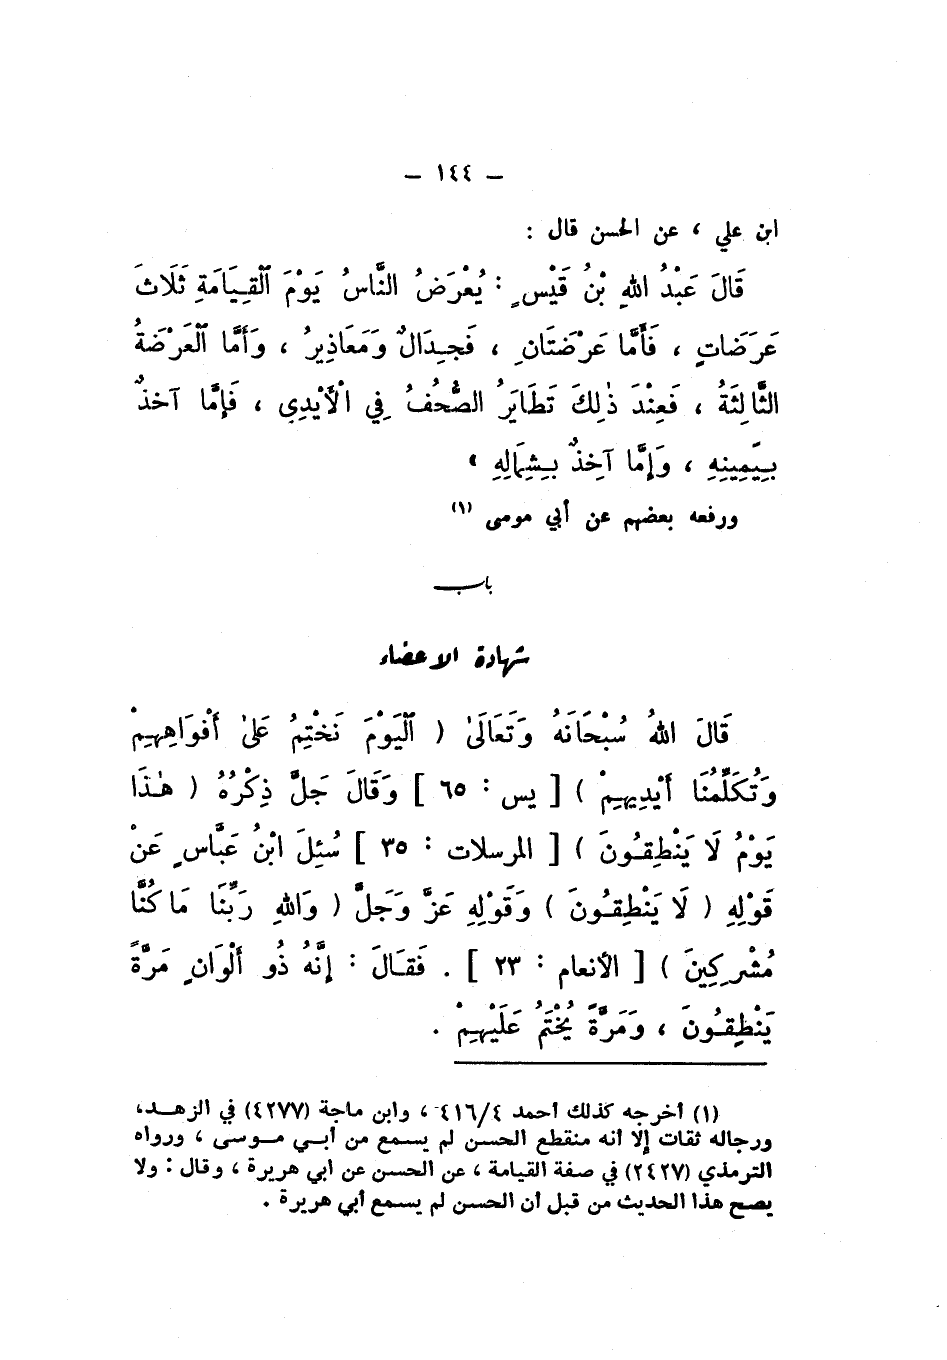 — ١٤٤ —
ابن علي ، عن الحسن قال :
قَالَ عَبْدُ اللهِ بْنُ قَيْسٍ : يُعْرَضُ النَّاسُ يَوْمَ ٱلْقِيَامَةِ ثَلَاثَ
عَرَضَاتٍ ، فَأَمَّا عَرْضَتَانِ ، فَجِدَالٌ وَمَعَاذِيرُ ، وَأَمَّا ٱلْعَرْضَةُ
الثَّالِثَةُ ، فَعِنْدَ ذٰلِكَ تَطَايَرُ الصُّحُفُ فِي الْأَيْدِي ، فَإِمَّا آخذٌ
بِيَمِينِهِ ، وَإِمَّا آخِذٌ بِشِمَالِهِ »
ورفعه بعضهم عن أبي موسى (١)
باب
شهادة الاعضاء
قَالَ اللهُ سُبْحَانَهُ وَتَعَالَىٰ ( ٱلْيَوْمَ نَخْتِمُ عَلىٰ أَفْوَاهِهِمْ
وَتُكَلِّمُنَا أَيْدِيهِمْ ) [ يس : ٦٥ ] وَقَالَ جَلَّ ذِكْرُهُ ( هٰذَا
يَوْمُ لَا يَنْطِقُونَ ) [ المرسلات : ٣٥ ] سُئِلَ ابْنُ عَبَّاسٍ عَنْ
قَوْلِهِ ( لَا يَنْطِقُونَ ) وَقَوْلِهِ عَزَّ وَجَلَّ ( وَاللهِ رَبِّنَا مَا كُنَّا
مُشْرِكِينَ ) [ الأنعام : ٢٣ ] . فَقَالَ : إِنَّهُ ذُو أَلْوَانٍ مَرَّةً
يَنْطِقُونَ ، وَمَرَّةً يُخْتَمُ عَلَيْهِمْ .
(١) أخرجه كذلك أحمد ٤١٦/٤ ، وابن ماجة (٤٢٧٧) في الزهد،
ورجاله ثقات إلا أنه منقطع الحسن لم يسمع من أبي موسى ، ورواه
الترمذي (٢٤٢٧) في صفة القيامة ، عن الحسن عن ابي هريرة ، وقال : ولا
يصح هذا الحديث من قبل أن الحسن لم يسمع أبي هريرة .